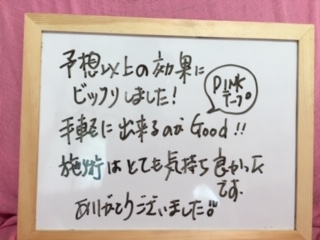 予想以上の効果に
ビックリしました!
PINK
テープ
手軽に出来るのがGood!!
施術はとても気持ち良かった
です。
ありがとうございました!!